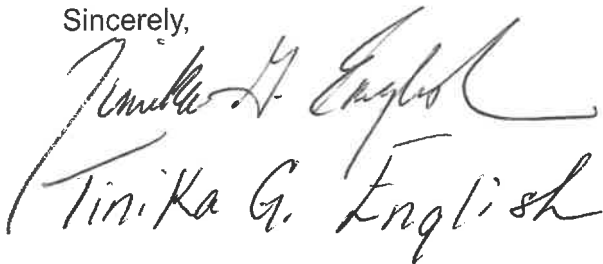 Sincerely,
Tinika G. English
Tinika G. English